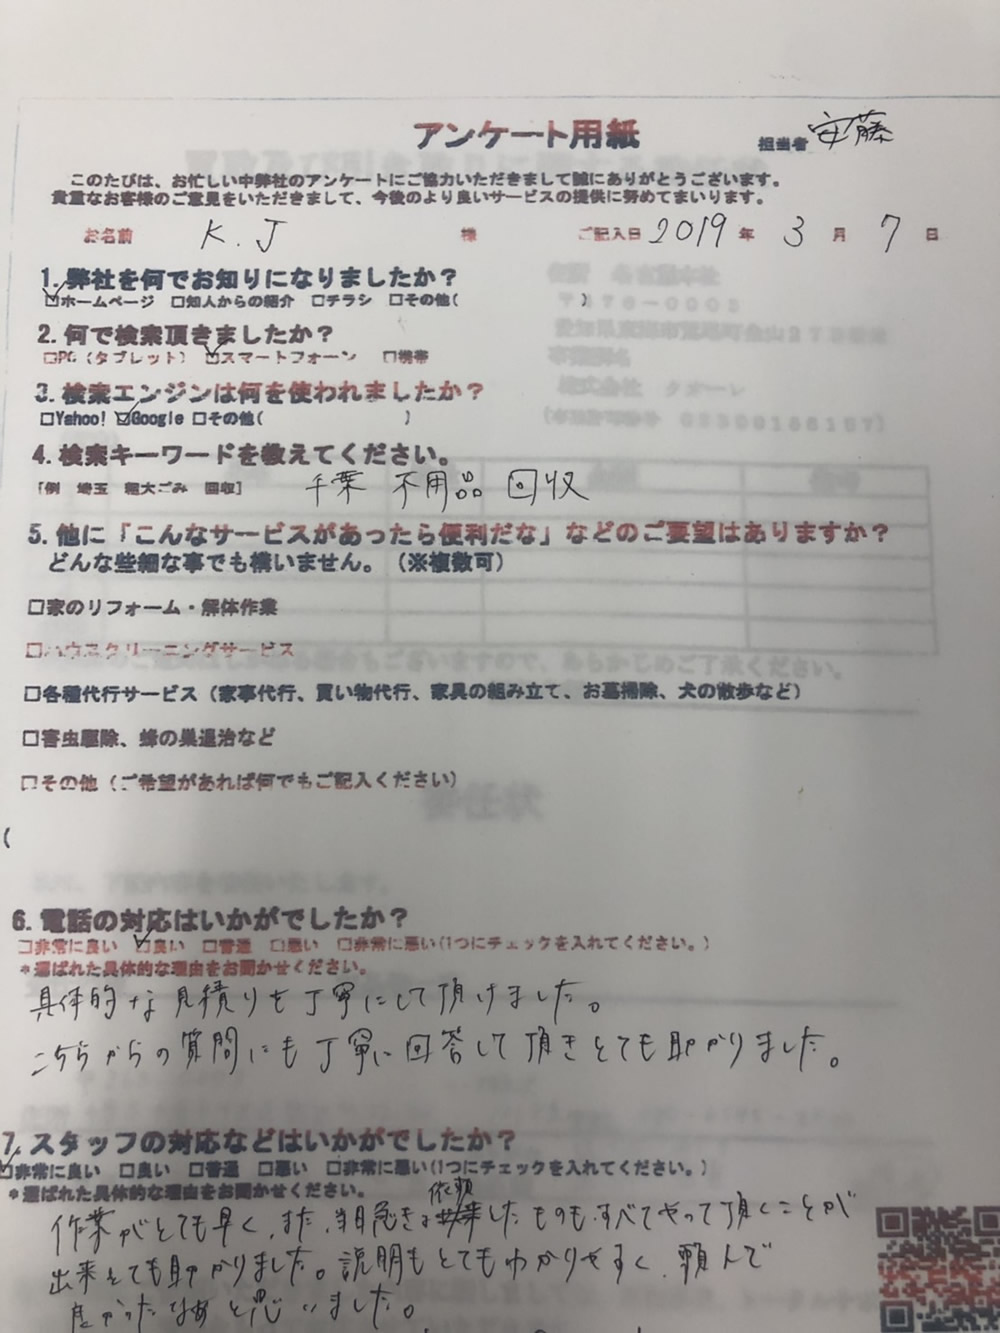 アンケート用紙
担当者 安藤
このたびは、お忙しい中弊社のアンケートにご協力いただきまして誠にありがとうございます。
貴重なお客様のご意見をいただきまして、今後のより良いサービスの提供に努めてまいります。
お名前 K.J 様 ご記入日 2019 年 3 月 7 日
1. 弊社を何でお知りになりましたか？
☑ホームページ □知人からの紹介 □チラシ □その他( )
2. 何で検索頂きましたか？
□PC（タブレット） ☑スマートフォーン □携帯
3. 検索エンジンは何を使われましたか？
□Yahoo! ☑Google □その他( )
4. 検索キーワードを教えてください。
[例 埼玉 粗大ごみ 回収] 千葉 不用品 回収
5. 他に「こんなサービスがあったら便利だな」などのご要望はありますか？
どんな些細な事でも構いません。（※複数可）
□家のリフォーム・解体作業
□ハウスクリーニングサービス
□各種代行サービス（家事代行、買い物代行、家具の組み立て、お墓掃除、犬の散歩など）
□害虫駆除、蜂の巣退治など
□その他（ご希望があれば何でもご記入ください）
(
6. 電話の対応はいかがでしたか？
□非常に良い ☑良い □普通 □悪い □非常に悪い(1つにチェックを入れてください。)
*選ばれた具体的な理由をお聞かせください。
具体的な見積りも丁寧にして頂けました。
こちらからの質問にも丁寧に回答して頂きとても助かりました。
7. スタッフの対応などはいかがでしたか？
☑非常に良い □良い □普通 □悪い □非常に悪い(1つにチェックを入れてください。)
*選ばれた具体的な理由をお聞かせください。
作業がとても早く、また、当日急きょ依頼したものも、すべてやって頂くことが
出来とても助かりました。説明もとてもわかりやすく、頼んで
良かったなあと思いました。